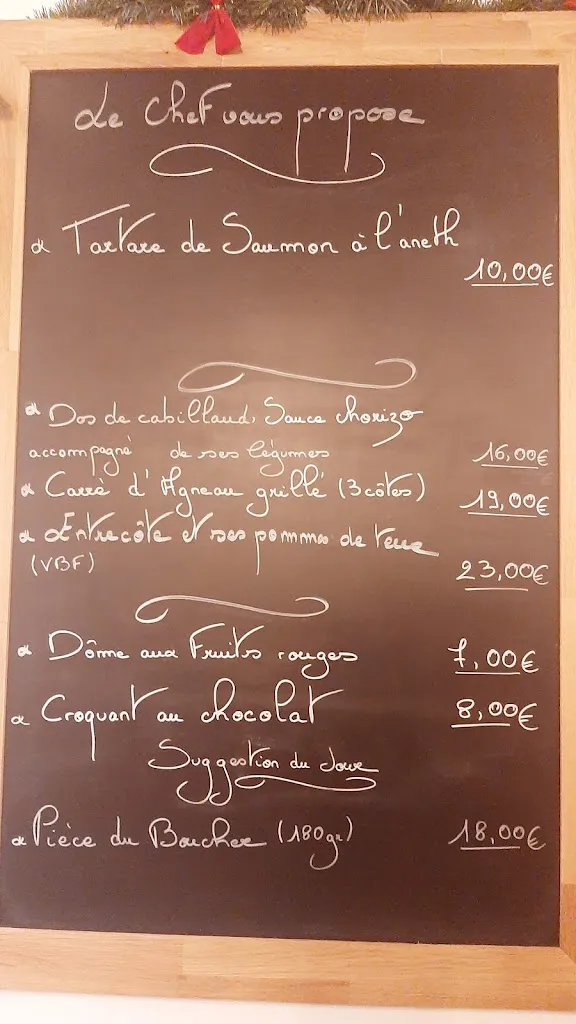 Le Chef vous propose
Tartare de Saumon à l'aneth
10,00€
Dos de cabillaud, Sauce chorizo
accompagné de ses légumes 16,00€
Carré d'Agneau grillé (3 côtes) 19,00€
Entrecôte et ses pommes de terre
(VBF) 23,00€
Dôme aux Fruits rouges 7,00€
Croquant au chocolat 8,00€
Suggestion du Jour
Pièce du Boucher (180gr) 18,00€